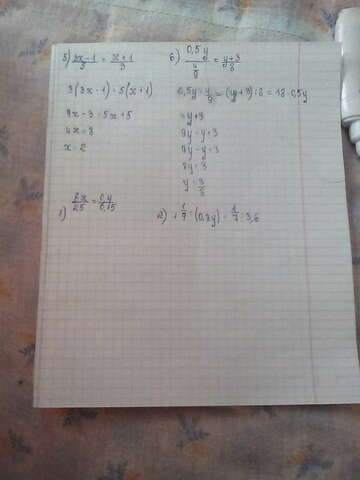 5) 3x-1/5 = x+1/3
3(3x-1) = 5(x+1)
9x-3 = 5x+5
4x = 8
x = 2
6) 0,5y/4/9 = y+3/8
0,5y : 4/9 = (y+3) : 8 = 18 · 0,5y
= y+3
9y = y+3
9y - y = 3
8y = 3
y = 3/8
1) 2x/25 = 0,4/0,15
2) 1 1/7 : (0,8y) = 1/7 : 3,6